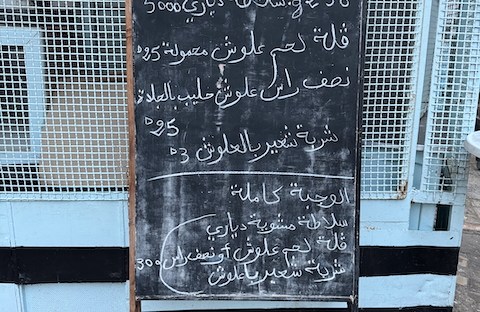 سلاطة دياري 5000
قلة لحم علوش محمولة 25D
نصف راس علوش حليب بالجلدة
25D
شربة شعير بالعلوش 3D
الوجبة كاملة
سلاطة مشوية دياري
قلة لحم علوش أو نصف راس 30D
شربة شعير باعلوش